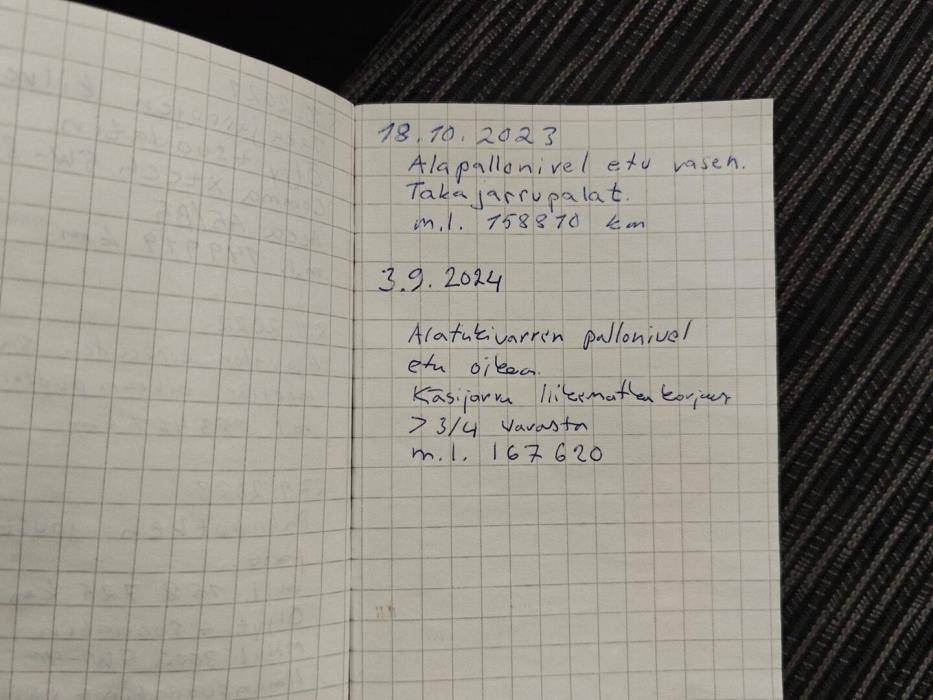 18.10.2023
Alapallonivel etu vasen.
Takajarrupalat.
m.l. 158810 km
3.9.2024
Alatukivarren pallonivel
etu oikea.
Käsijarru liikematkan korjaus
> 3/4 varasta
m.l. 167620